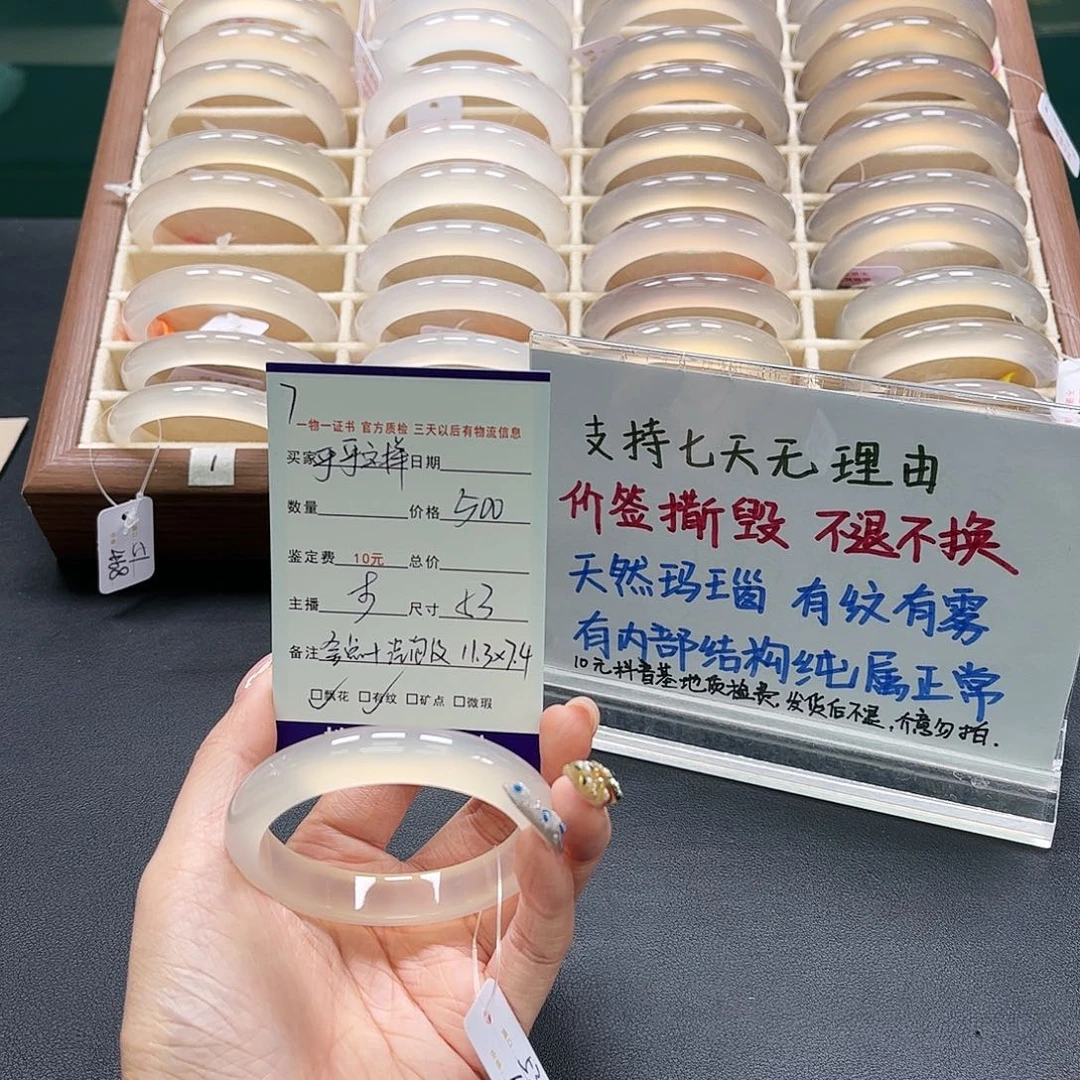 7
一物一证书 官方质检 三天以后有物流信息
买家 日期
数量 价格 500
鉴定费 10元 总价
主播 尺寸 53
备注 11.3×7.4
☑飘花 ☑有纹 □矿点 □微瑕
支持七天无理由
价签撕毁 不退不换
天然玛瑙 有纹有雾
有内部结构纯属正常
10元抖音基地质检费,发货后不退,介意勿拍.
1